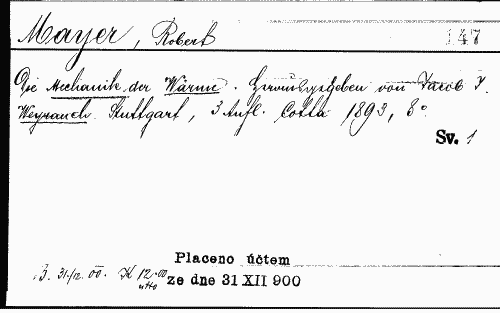 Mayer, Robert 147
Die Mechanik der Wärme. Herausgegeben von Jacob J.
Weyrauch. Stuttgart, 3 Aufl. Cotta 1893, 8°
Sv. 1
Placeno účtem
3. 31./12. 00. K 12.00 ze dne 31 XII 900
netto